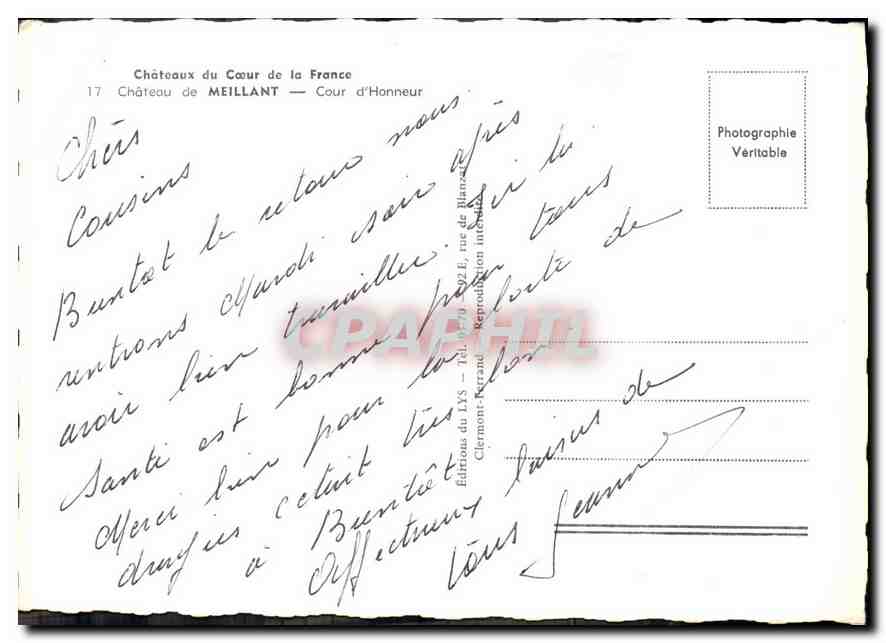 Châteaux du Cœur de la France
17 Château de MEILLANT — Cour d'Honneur
Photographie
Véritable
Chers
Cousins
Bientôt le retour nous
rentrons Mardi soir après
avoir bien travaillé. Ici la
Santé est bonne pour tous
Merci bien pour la boîte de
dragées c'était très bon
à Bientôt
Affectueux baisers de
tous Jeanne
Éditions du LYS — Tél. 01-70 — 92 E, rue de Blanzat
Clermont-Ferrand — Reproduction interdite
CPAPHIL